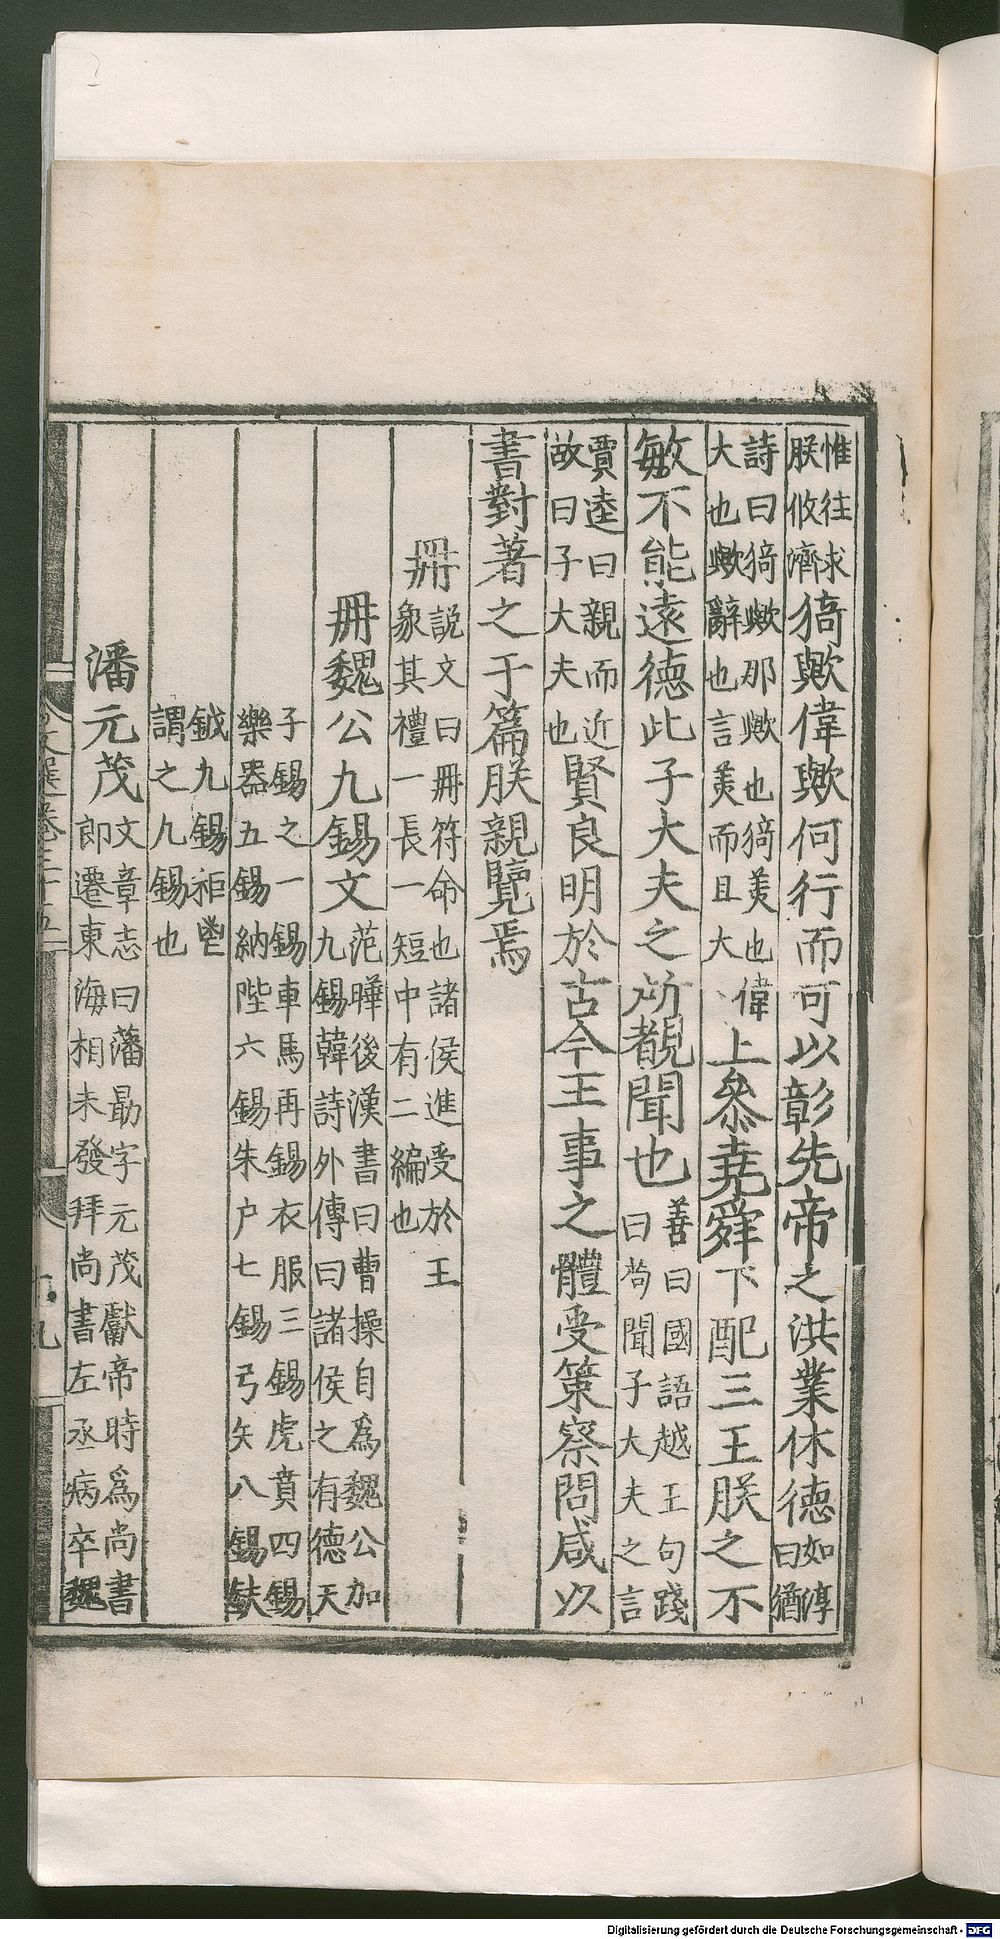 惟往求
朕攸濟
猗歟偉歟何行而可以彰先帝之洪業休德
如淳
曰猶
詩曰猗歟那歟也猗羙也偉
大也歟辭也言羙而且大
上叅堯舜下配三王朕之不
敏不能遠德此子大夫之所覩聞也
善曰國語越王句踐
曰苟聞子大夫之言
賈逵曰親而近
故曰子大夫也
賢良明於古今王事之體受策察問咸以
書對著之于篇朕親覽焉
冊
説文曰冊符命也諸侯進受於王
象其禮一長一短中有二編也
冊魏公九錫文
范曄後漢書曰曹操自爲魏公加
九錫韓詩外傳曰諸侯之有德天
子錫之一錫車馬再錫衣服三錫虎賁四錫
樂器五錫納陛六錫朱户七錫弓矢八錫鈇
鉞九錫秬鬯
謂之九錫也
潘元茂
文章志曰藩勗字元茂獻帝時爲尚書
郎遷東海相未發拜尚書左丞病卒魏
文選卷三十五
十九
Digitalisierung gefördert durch die Deutsche Forschungsgemeinschaft - DFG